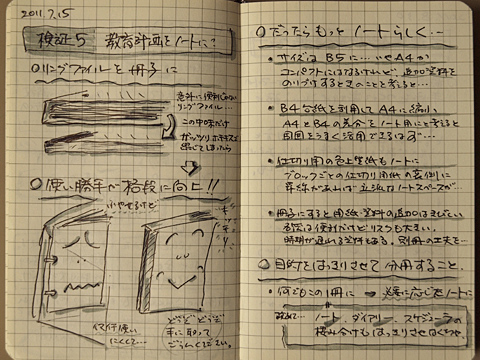 2011.7.15
検証5 教育計画をノートに?
○リングファイルを冊子に
意外に便利じゃない
リングファイル…
この中味だけ
ガッツリホチキスで
出してしまったら
○使い勝手が格段に向上!!
どうぞどうぞ
手に取って
ごらんください。
○だったらもっとノートらしく…
・サイズはB5に…いやA4か
コンパクトにはなるけれど追加資料を
のりづけするときのこと考えると…
・B4台紙を利用してA4に縮小
A4とB4の差分をノート用にと考えると
周囲をうまく活用できるはず…
・仕切り用の色上質紙もノートに
ブロックごとの仕切り用紙の裏側に
罫線があれば立派なノートスペースが…
・冊子にすると用紙・資料の追加はきびしい
時期が遅れる資料もある。別冊の工夫を…
○目的をはっきりさせて分冊すること。
・何でもこの1冊に → 必要に応じたノートに
ノート、ダイアリー、スケジューラの
棲み分けもはっきりさせなくちゃ。